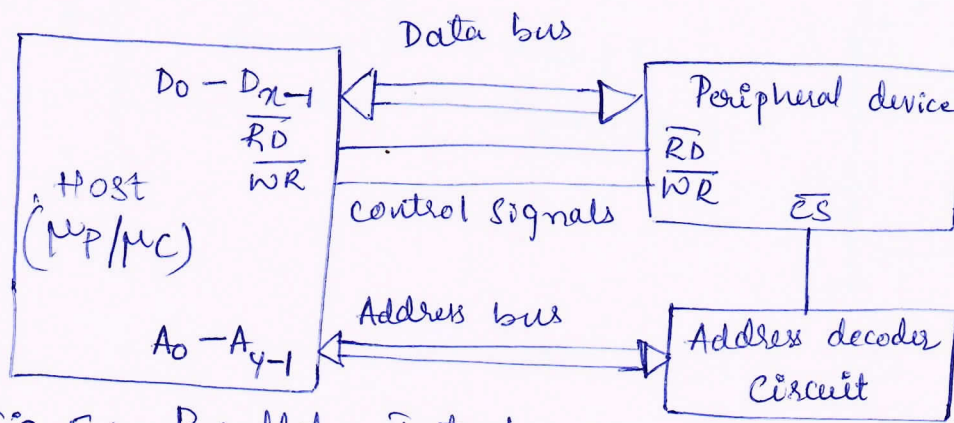 Data bus
D0 - Dn-1
RD
WR
Host
(μP/μC)
A0 - Ay-1
Peripheral device
RD
WR
CS
control signals
Address bus
Address decoder
Circuit